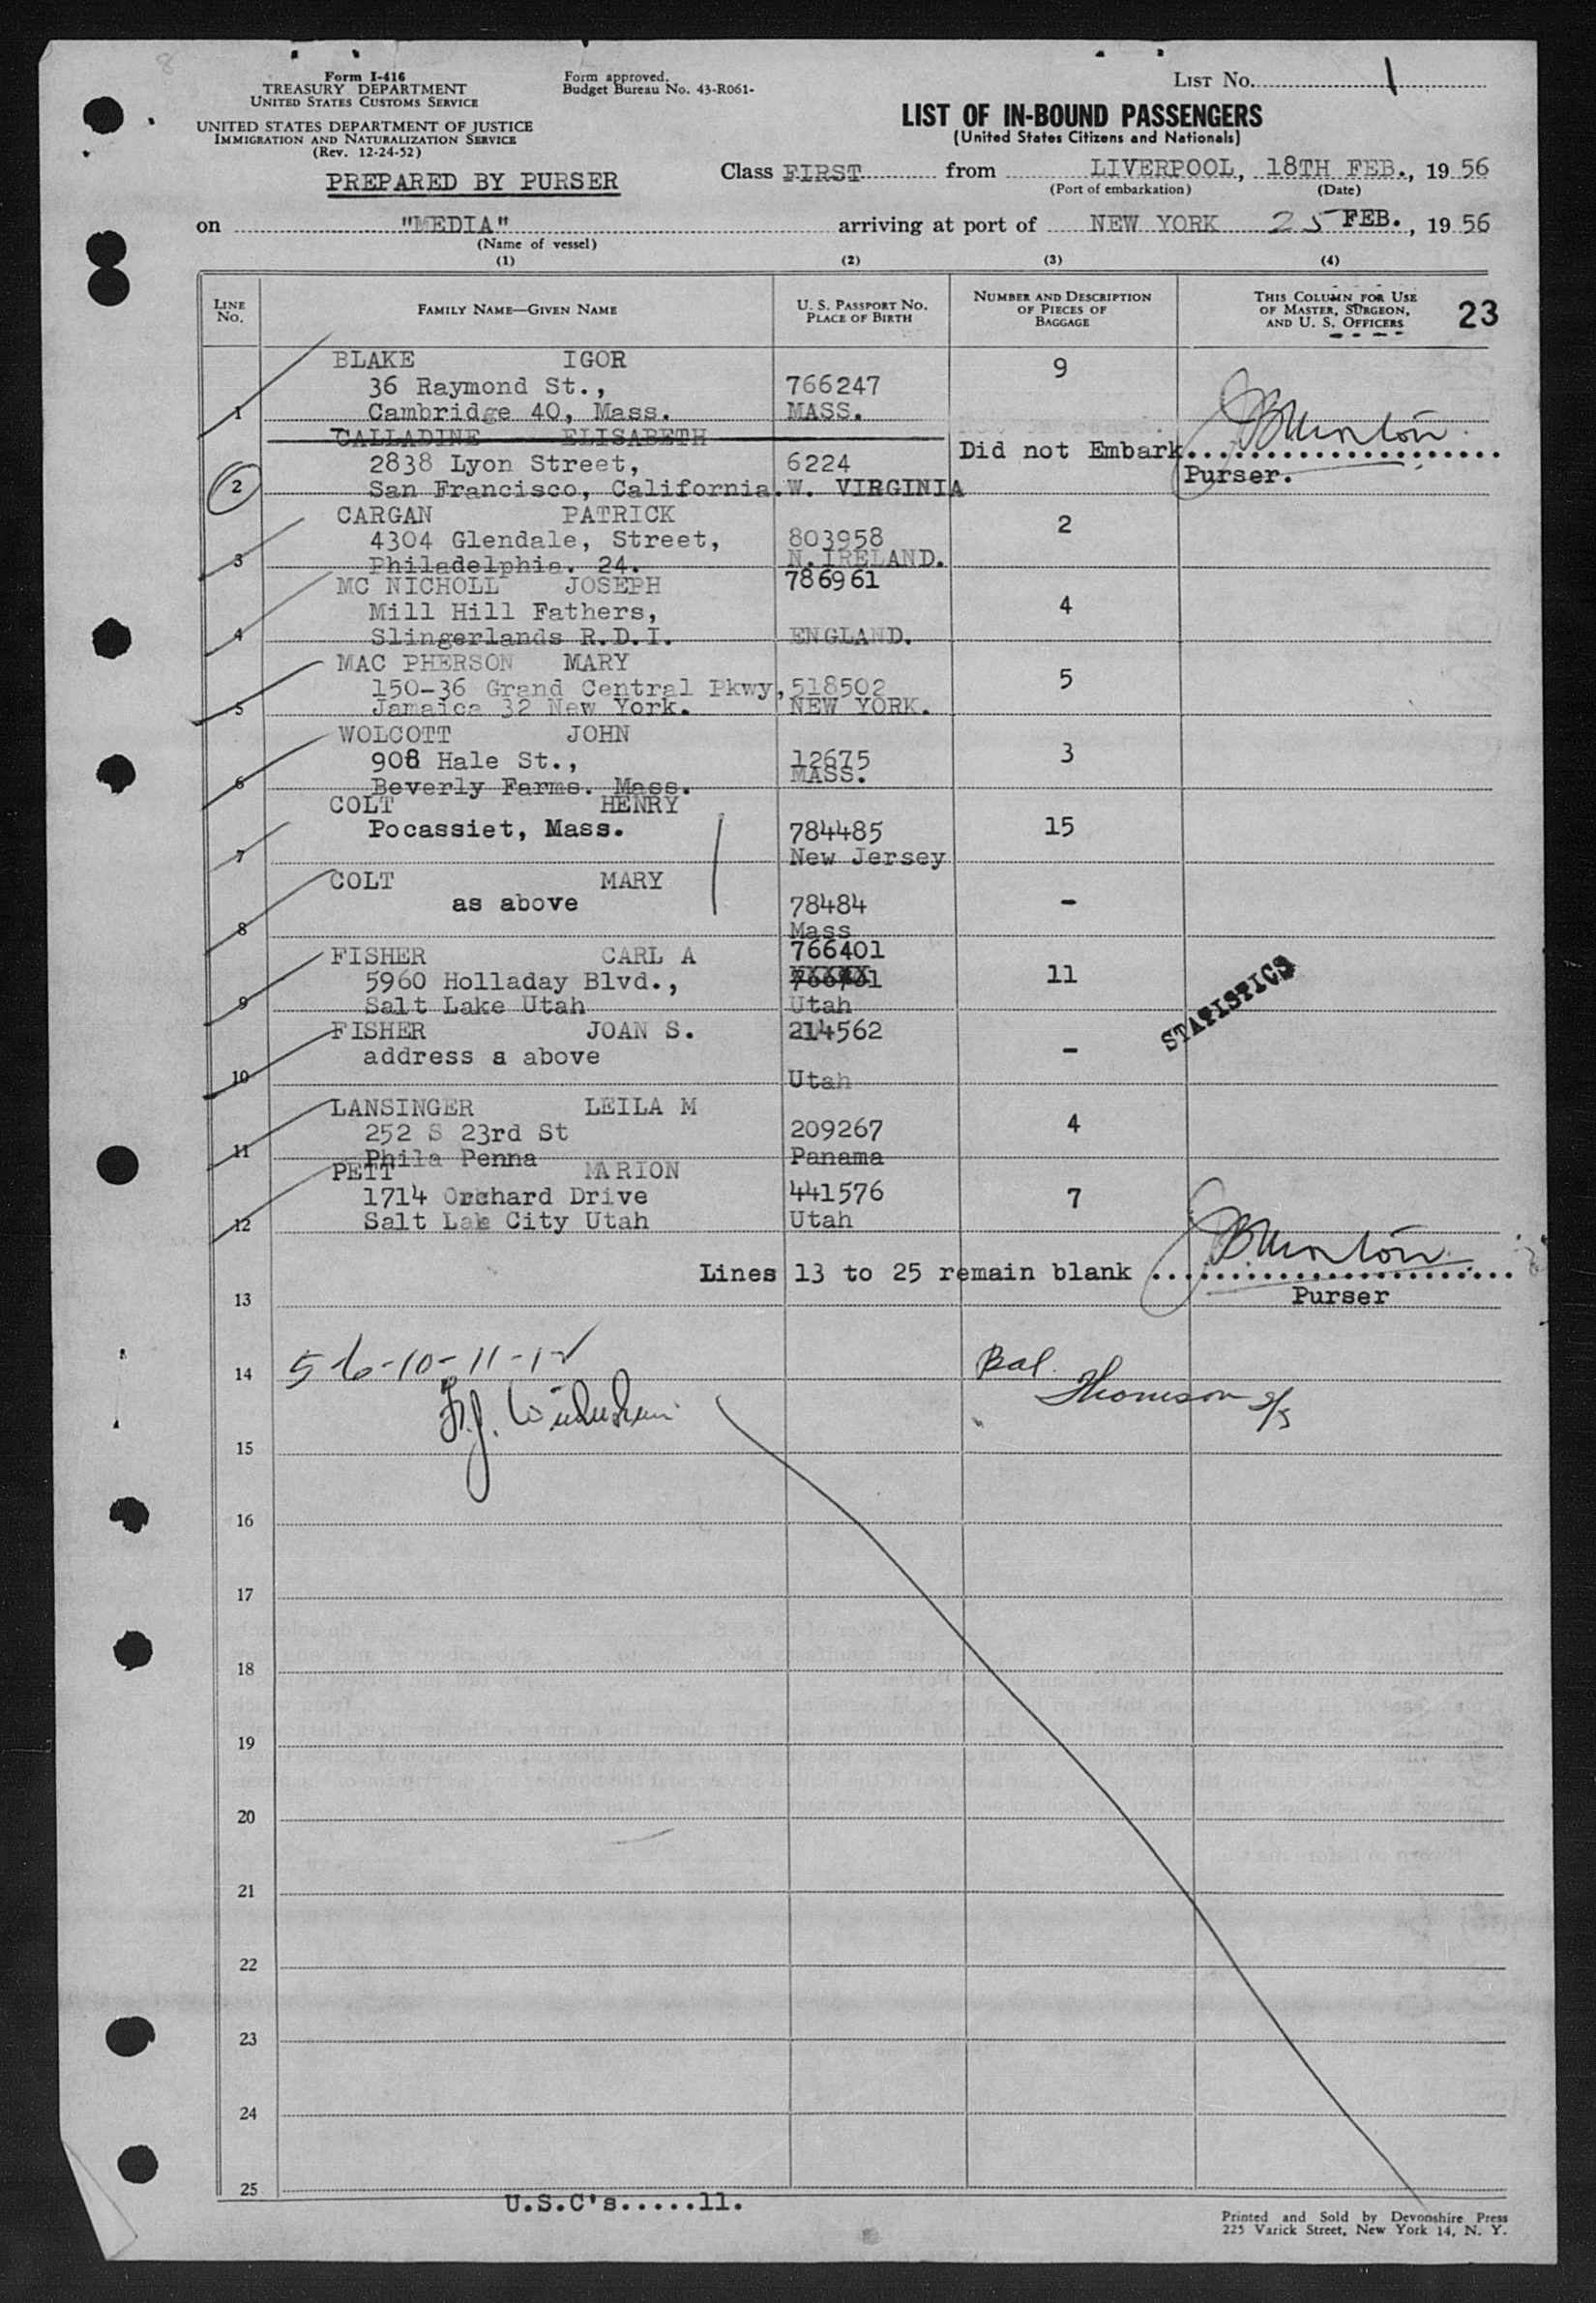 Form I-416
TREASURY DEPARTMENT
UNITED STATES CUSTOMS SERVICE
UNITED STATES DEPARTMENT OF JUSTICE
IMMIGRATION AND NATURALIZATION SERVICE
(Rev. 12-24-52)
PREPARED BY PURSER
Form approved.
Budget Bureau No. 43-R061-
LIST NO. 1
LIST OF IN-BOUND PASSENGERS
(United States Citizens and Nationals)
Class FIRST from LIVERPOOL, 18TH FEB., 19 56
(Port of embarkation) (Date)
on "MEDIA" arriving at port of NEW YORK 25 FEB., 19 56
(Name of vessel)
(1) (2) (3) (4)
LINE NO.
FAMILY NAME—GIVEN NAME
U. S. PASSPORT NO.
PLACE OF BIRTH
NUMBER AND DESCRIPTION
OF PIECES OF
BAGGAGE
THIS COLUMN FOR USE
OF MASTER, SURGEON,
AND U. S. OFFICERS
23
BLAKE IGOR 9
36 Raymond St., 766247
1 Cambridge 40, Mass. MASS.
CALLADINE ELISABETH
Did not Embark
2838 Lyon Street, 6224
Purser.
2 San Francisco, California. W. VIRGINIA
CARGAN PATRICK 2
4304 Glendale, Street, 803958
3 Philadelphia. 24. N. IRELAND.
MC NICHOLL JOSEPH 786961
Mill Hill Fathers, 4
4 Slingerlands R.D.I. ENGLAND.
MAC PHERSON MARY 5
150-36 Grand Central Pkwy, 518502
5 Jamaica 32 New York. NEW YORK.
WOLCOTT JOHN 3
908 Hale St., 12675
6 Beverly Farms. Mass. MASS.
COLT HENRY
Pocassiet, Mass. 784485 15
7 New Jersey
COLT MARY
as above 78484 -
8 Mass
FISHER CARL A 766401
5960 Holladay Blvd., 11
9 Salt Lake Utah Utah
STATISTICS
FISHER JOAN S. 214562
address a above -
10 Utah
LANSINGER LEILA M
252 S 23rd St 209267 4
11 Phila Penna Panama
PETT MARION
1714 Orchard Drive 441576 7
12 Salt Lake City Utah Utah
Lines 13 to 25 remain blank
Purser
13
14 5-6-10-11-12 Bal.
Thomson
15
16
17
18
19
20
21
22
23
24
25
U.S.C's.....11.
Printed and Sold by Devonshire Press
225 Varick Street, New York 14, N. Y.